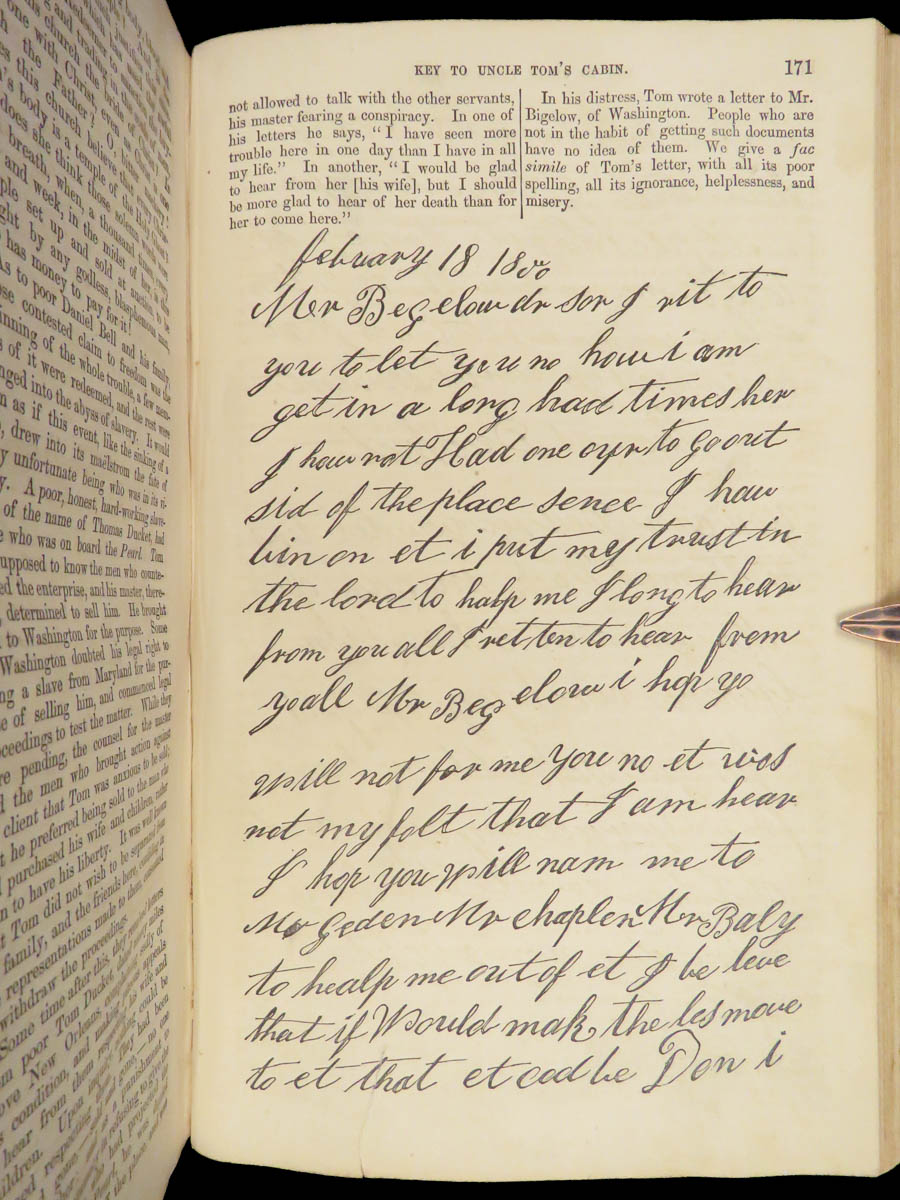 KEY TO UNCLE TOM'S CABIN.
171
not allowed to talk with the other servants,
his master fearing a conspiracy. In one of
his letters he says, "I have seen more
trouble here in one day than I have in all
my life." In another, "I would be glad
to hear from her [his wife], but I should
be more glad to hear of her death than for
her to come here."
In his distress, Tom wrote a letter to Mr.
Bigelow, of Washington. People who are
not in the habit of getting such documents
have no idea of them. We give a fac
simile of Tom's letter, with all its poor
spelling, all its ignorance, helplessness, and
misery.
february 18 18
Mr Begelow dr sor I rit to
you to let you no how i am
get in a long had times her
I hav not Had one oyr to go out
sid of the place sence I hav
bin on et i put my trust in
the lord to halp me I long to hear
from you all I ret ten to hear from
yoall Mr Begelow i hop yo
will not for me You no et wos
not my folt that I am hear
I hop you will nam me to
Mr Geden Mr chaplen Mr Baly
to healp me out of et I be leve
that if Would mak the les move
to et that et cod be Don i
this church the bride of
one with Christ, even as
the Father? O, that one
does this church believe
's body is a temple of the Holy
does she think those solemn words
breath, when, a thousand times
and week, in the midst of her
ple set up and sold at auction, to
ght by any godless, blasphemous man,
has money to pay for it!
As to poor Daniel Bell and his family,
ose contested claim to freedom was the
inning of the whole trouble, a few mem-
s of it were redeemed, and the rest were
nged into the abyss of slavery. It would
m as if this event, like the sinking of a
, drew into its maëlstrom the fate of
y unfortunate being who was in its vi-
y. A poor, honest, hard-working slave-
of the name of Thomas Ducket, had
e who was on board the Pearl. Tom
upposed to know the men who counte-
ed the enterprise, and his master, there-
, determined to sell him. He brought
to Washington for the purpose. Some
Washington doubted his legal right to
ng a slave from Maryland for the pur-
e of selling him, and commenced legal
ceedings to test the matter. While they
re pending, the counsel for the master
d the men who brought action against
client that Tom was anxious to be sold;
t he preferred being sold to the man who
d purchased his wife and children, rather
n to have his liberty. It was well known
t Tom did not wish to be separated from
family, and the friends here, confiding in
representations made to them, consented
withdraw the proceedings.
Some time after this, they received letters
m poor Tom Ducket, dated ninety miles
ove New Orleans, complaining sadly of
condition, and making piteous appeals
hear from them respecting his wife and
ildren. Upon inquiry, nothing could be